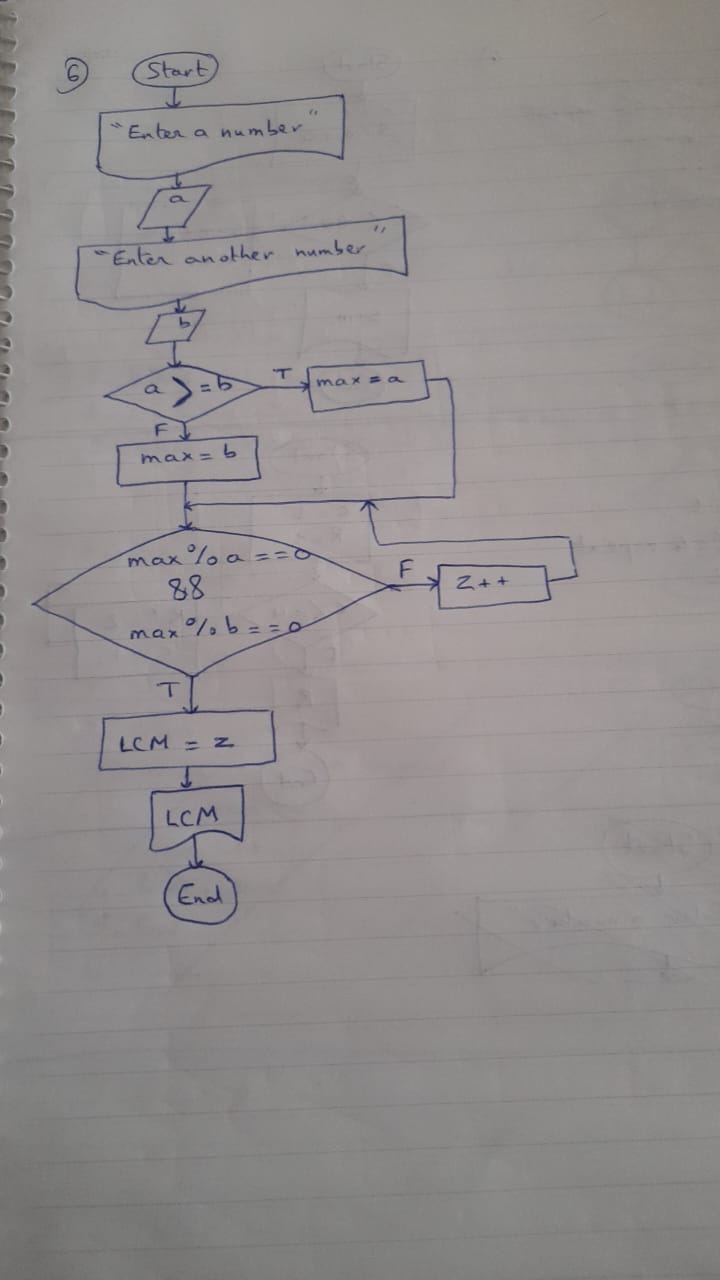 6
Start
"Enter a number"
a
"Enter another number"
b
a >= b
T
max = a
F
max = b
max % a == 0
&&
max % b == 0
F
z++
T
LCM = z
LCM
End